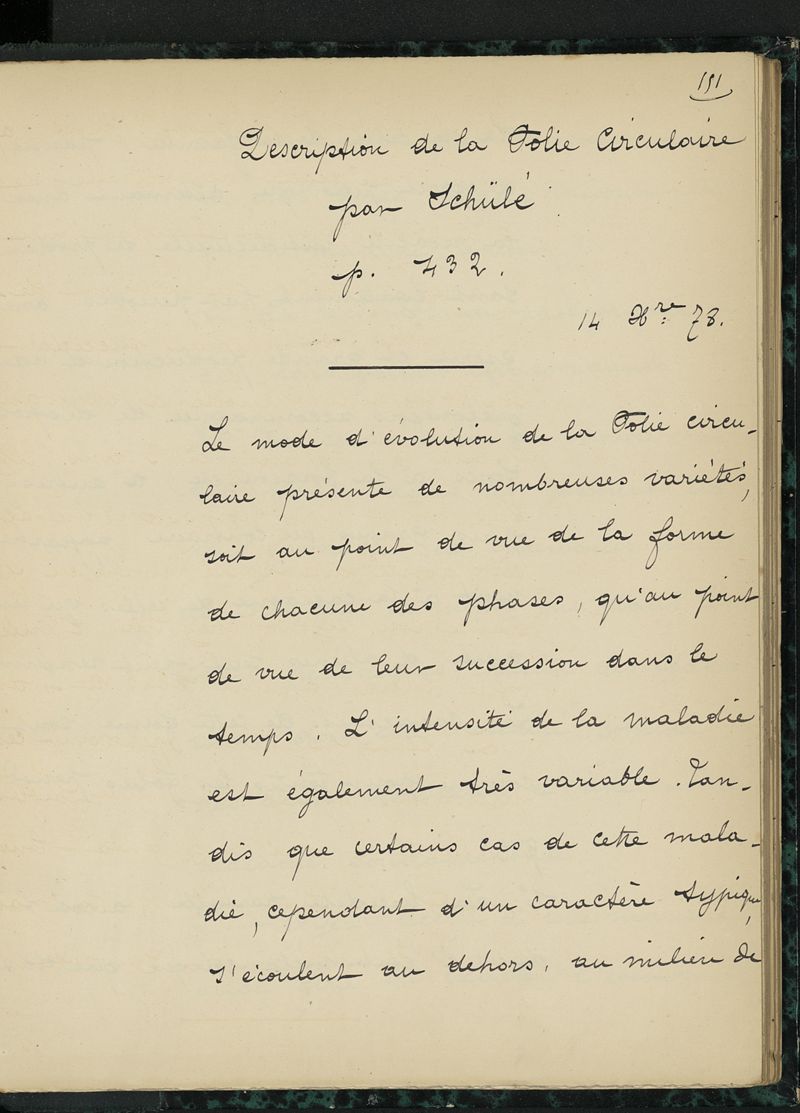 191
Description de la Folie Circulaire
par Schülé
p. 432.
14 Xre 78.
Le mode d'évolution de la Folie circu-
laire présente de nombreuses variétés,
soit au point de vue de la forme
de chacune des phases, qu'au point
de vue de leur succession dans le
temps. L'intensité de la maladie
est également très variable. Tan-
dis que certains cas de cette mala-
die, cependant d'un caractère typique,
s'écoulent au dehors, au milieu de